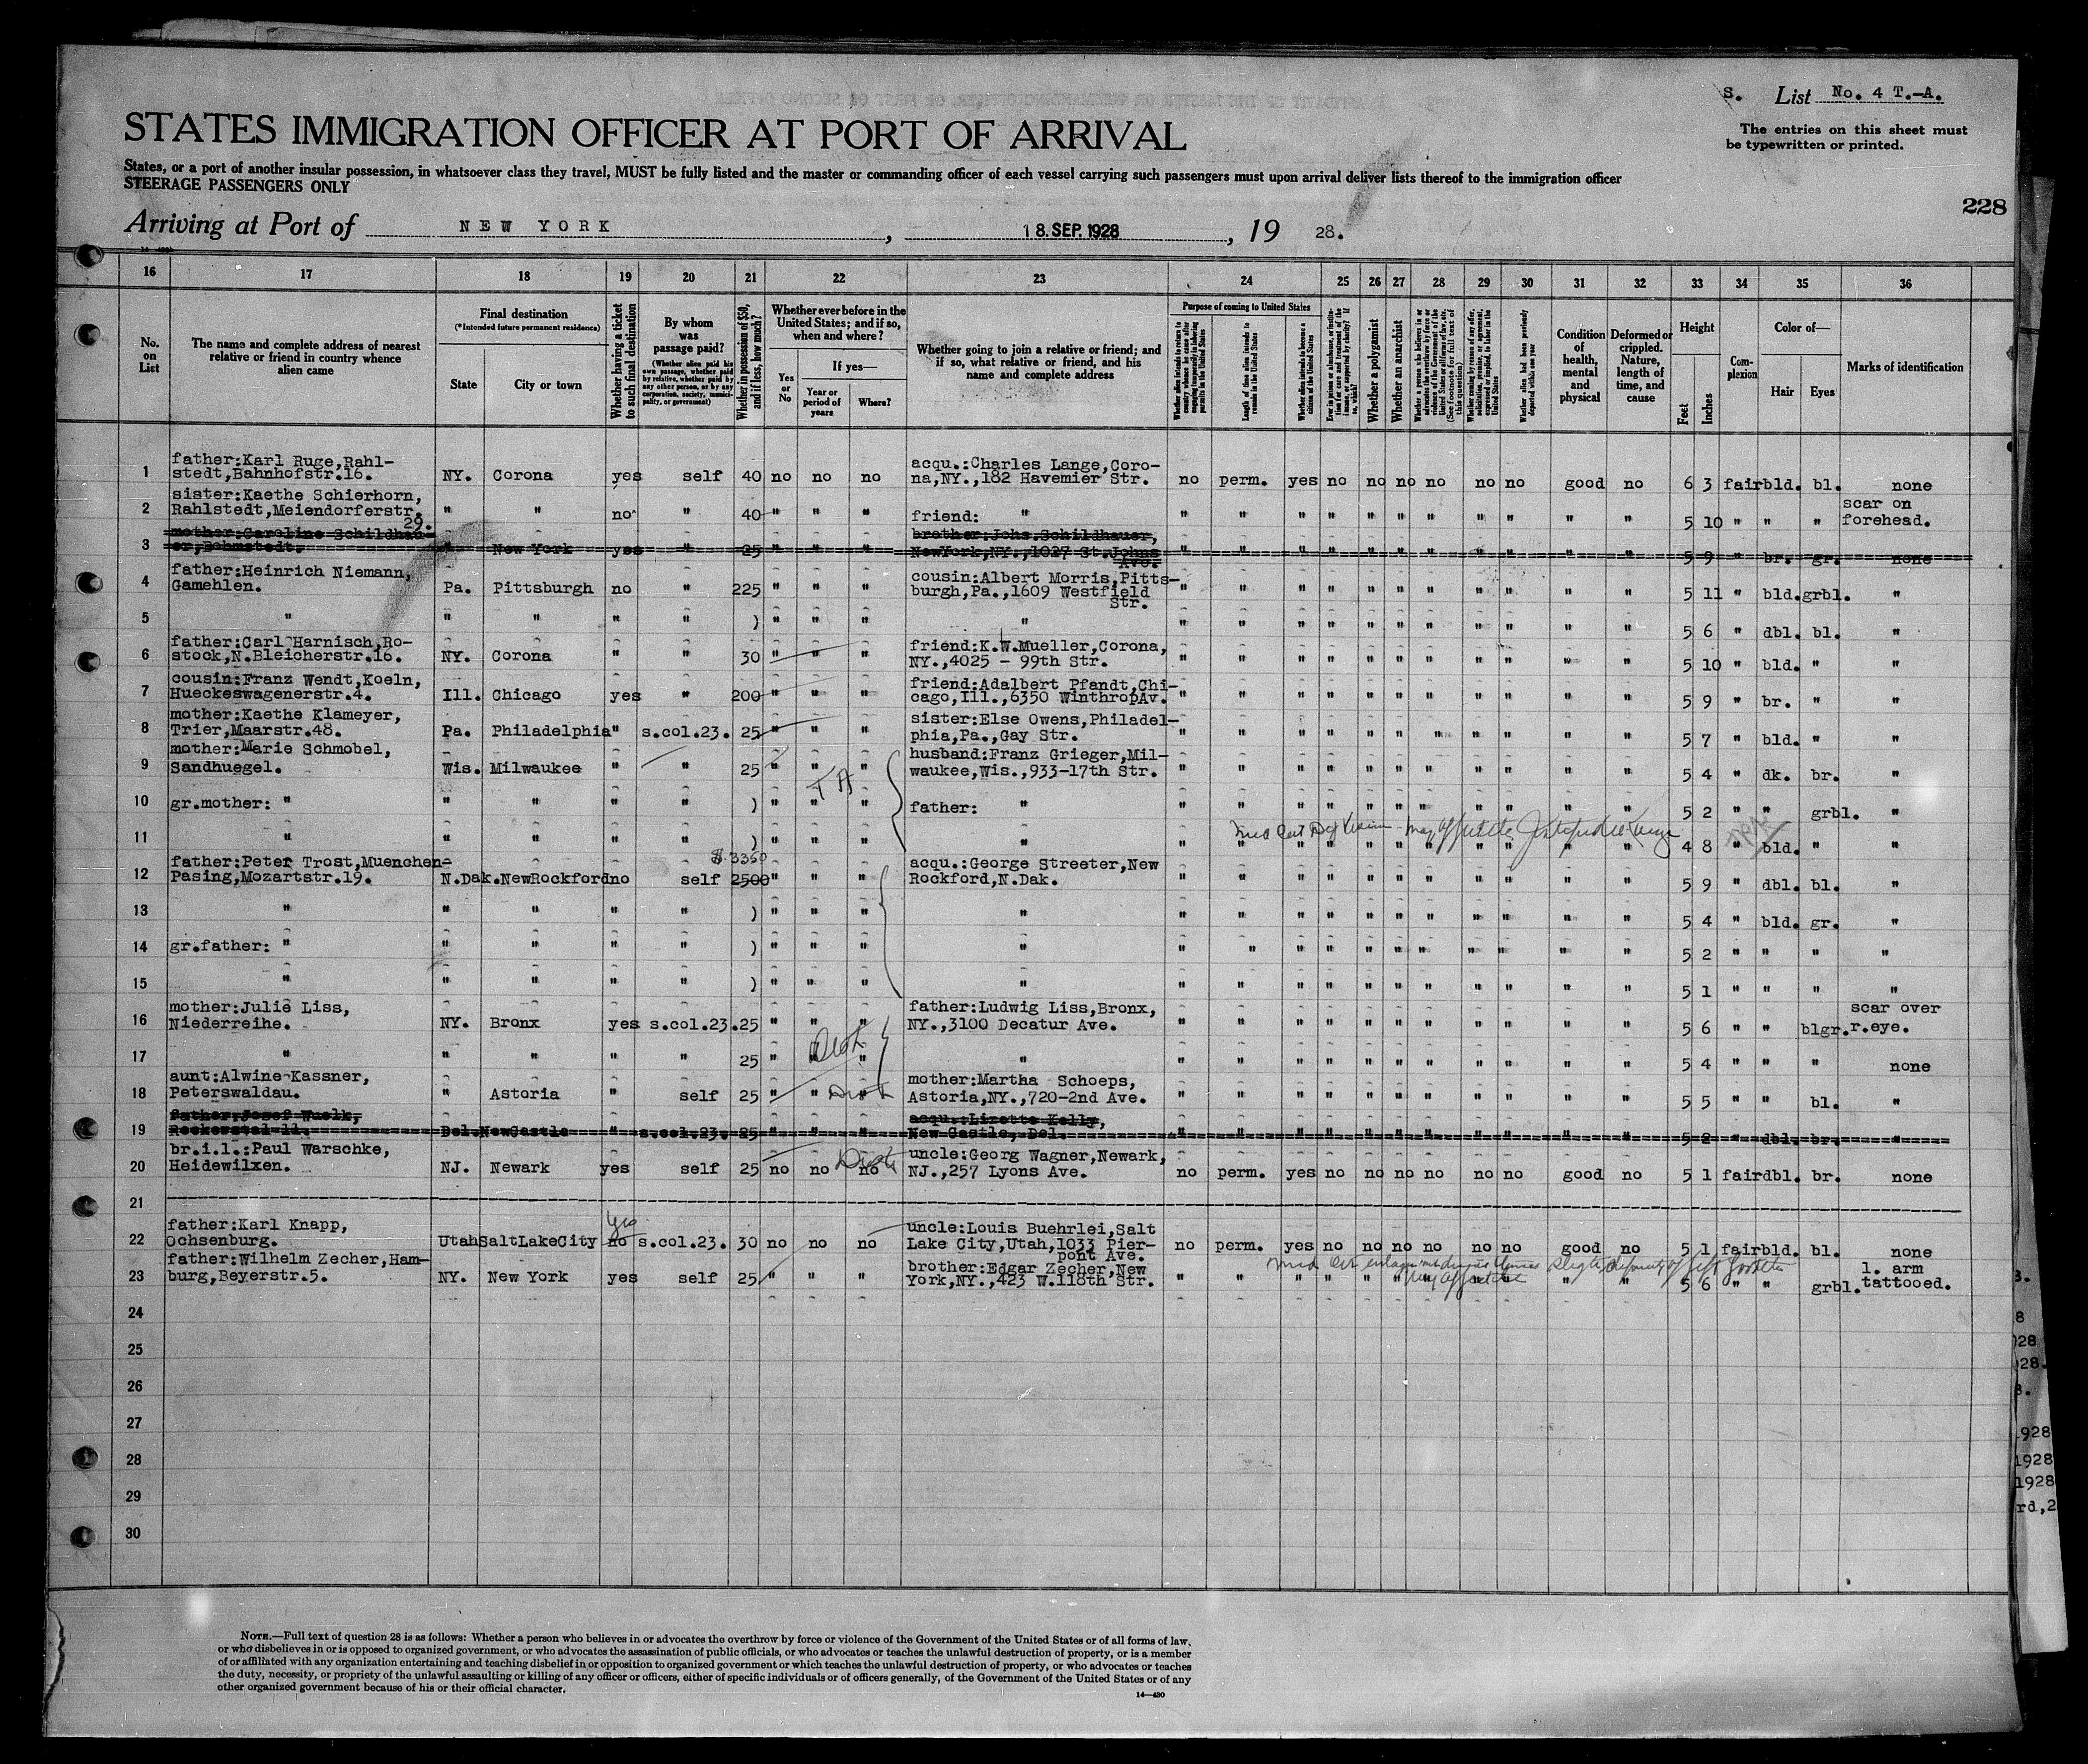 S. List No. 4 T.-A.
STATES IMMIGRATION OFFICER AT PORT OF ARRIVAL
The entries on this sheet must
be typewritten or printed.
States, or a port of another insular possession, in whatsoever class they travel, MUST be fully listed and the master or commanding officer of each vessel carrying such passengers must upon arrival deliver lists thereof to the immigration officer
STEERAGE PASSENGERS ONLY
228
Arriving at Port of NEW YORK, 18. SEP. 1928, 19 28.
16 17 18 19 20 21 22 23 24 25 26 27 28 29 30 31 32 33 34 35 36
No. on List
The name and complete address of nearest relative or friend in country whence alien came
Final destination
(*Intended future permanent residence)
State
City or town
Whether having a ticket to such final destination
By whom was passage paid?
(Whether alien paid his own passage, whether paid by relative, whether paid by any other person, or by any corporation, society, municipality, or government)
Whether in possession of $50, and if less, how much?
Whether ever before in the United States; and if so, when and where?
Yes or No
If yes—
Year or period of years
Where?
Whether going to join a relative or friend; and if so, what relative or friend, and his name and complete address
Purpose of coming to United States
Length of time alien intends to remain in the United States
Whether alien intends to become a citizen of the United States
Whether a polygamist
Whether an anarchist
Condition of health, mental and physical
Deformed or crippled. Nature, length of time, and cause
Height
Feet
Inches
Complexion
Color of—
Hair
Eyes
Marks of identification
1 father:Karl Ruge,Rahlstedt,Bahnhofstr.16. NY. Corona yes self 40 no no no acqu.:Charles Lange,Corona,NY.,182 Havemier Str. no perm. yes no no no no no no good no 6 3 fair bld. bl. none
2 sister:Kaethe Schierhorn, Rahlstedt,Meiendorferstr. 29. " " no " 40 " " " friend: " " " " " " " " " " " " 5 10 " " " scar on forehead.
3 mother:Caroline Schildhauer,Bohmstedt. " New York yes " 25 " " " brother:Johs.Schildhauer, NewYork,NY.,1027 St.Johns Ave. " " " " " " " " " " " 5 9 " br. gr. none
4 father:Heinrich Niemann, Gamehlen. Pa. Pittsburgh no " 225 " " " cousin:Albert Morris,Pittsburgh,Pa.,1609 Westfield Str. " " " " " " " " " " " 5 11 " bld. grbl. "
5 " " " " " ) " " " " " " " " " " " " " " " 5 6 " dbl. bl. "
6 father:Carl Harnisch,Rostock,N.Bleicherstr.16. NY. Corona " " 30 " " " friend:K.W.Mueller,Corona, NY.,4025 - 99th Str. " " " " " " " " " " " 5 10 " bld. " "
7 cousin:Franz Wendt,Koeln, Hueckeswagenerstr.4. Ill. Chicago yes " 200 " " " friend:Adalbert Pfandt,Chicago,Ill.,6350 WinthropAv. " " " " " " " " " " " 5 9 " br. " "
8 mother:Kaethe Klameyer, Trier,Maarstr.48. Pa. Philadelphia " s.col.23. 25 " " " sister:Else Owens,Philadelphia,Pa.,Gay Str. " " " " " " " " " " " 5 7 " bld. " "
9 mother:Marie Schmobel, Sandhuegel. Wis. Milwaukee " " 25 " " " husband:Franz Grieger,Milwaukee,Wis.,933-17th Str. " " " " " " " " " " " 5 4 " dk. br. "
10 gr.mother: " " " " " ) " " " father: " " " " " " " " " " " " 5 2 " " grbl. "
11 " " " " " ) " " " " " " " " " " " " " " 4 8 " bld. " "
12 father:Peter Trost,Muenchen-Pasing,Mozartstr.19. N.Dak. NewRockford no self $3350 2500 " " " acqu.:George Streeter,New Rockford,N.Dak. " " " " " " " " " " " 5 9 " dbl. bl. "
13 " " " " " ) " " " " " " " " " " " " " " " 5 4 " bld. gr. "
14 gr.father: " " " " " ) " " " " " " " " " " " " " " " 5 2 " " " "
15 " " " " " ) " " " " " " " " " " " " " " " 5 1 " " " "
16 mother:Julie Liss, Niederreihe. NY. Bronx yes s.col.23. 25 " " " father:Ludwig Liss,Bronx, NY.,3100 Decatur Ave. " " " " " " " " " " " 5 6 " " blgr. scar over r.eye.
17 " " " " " 25 " " " " " " " " " " " " " " " 5 4 " " " none
18 aunt:Alwine Kassner, Peterswaldau. " Astoria " self 25 " " " mother:Martha Schoeps, Astoria,NY.,720-2nd Ave. " " " " " " " " " " " 5 5 " " bl. "
19 father:Josef Wuelk, Del. NewCastle " s.col.23. 25 " " " acqu.:Lisette Kelly, New Castle, Del. " " " " " " " " " " " 5 2 " dbl. br. "
20 br.i.l.:Paul Warschke, Heidewilxen. NJ. Newark yes self 25 no no no uncle:Georg Wagner,Newark, NJ.,257 Lyons Ave. no perm. yes no no no no no no good no 5 1 fair dbl. br. none
21
22 father:Karl Knapp, Ochsenburg. Utah SaltLakeCity no yes s.col.23. 30 no no no uncle:Louis Buehrlei,Salt Lake City,Utah,1033 Pierpont Ave. no perm. yes no no no no no no good no 5 1 fair bld. bl. none
23 father:Wilhelm Zecher,Hamburg,Beyerstr.5. NY. New York yes self 25 " " " brother:Edgar Zecher,New York,NY.,423 W.118th Str. " " " " " " " " " " " 5 6 " " grbl. l. arm tattooed.
24
25
26
27
28
29
30
NOTE.—Full text of question 28 is as follows: Whether a person who believes in or advocates the overthrow by force or violence of the Government of the United States or of all forms of law,
or who disbelieves in or is opposed to organized government, or who advocates the assassination of public officials, or who advocates or teaches the unlawful destruction of property, or is a member
of or affiliated with any organization entertaining and teaching disbelief in or opposition to organized government or which teaches the unlawful destruction of property, or who advocates or teaches
the duty, necessity, or propriety of the unlawful assaulting or killing of any officer or officers, either of specific individuals or of officers generally, of the Government of the United States or of any
other organized government because of his or their official character.
14—430